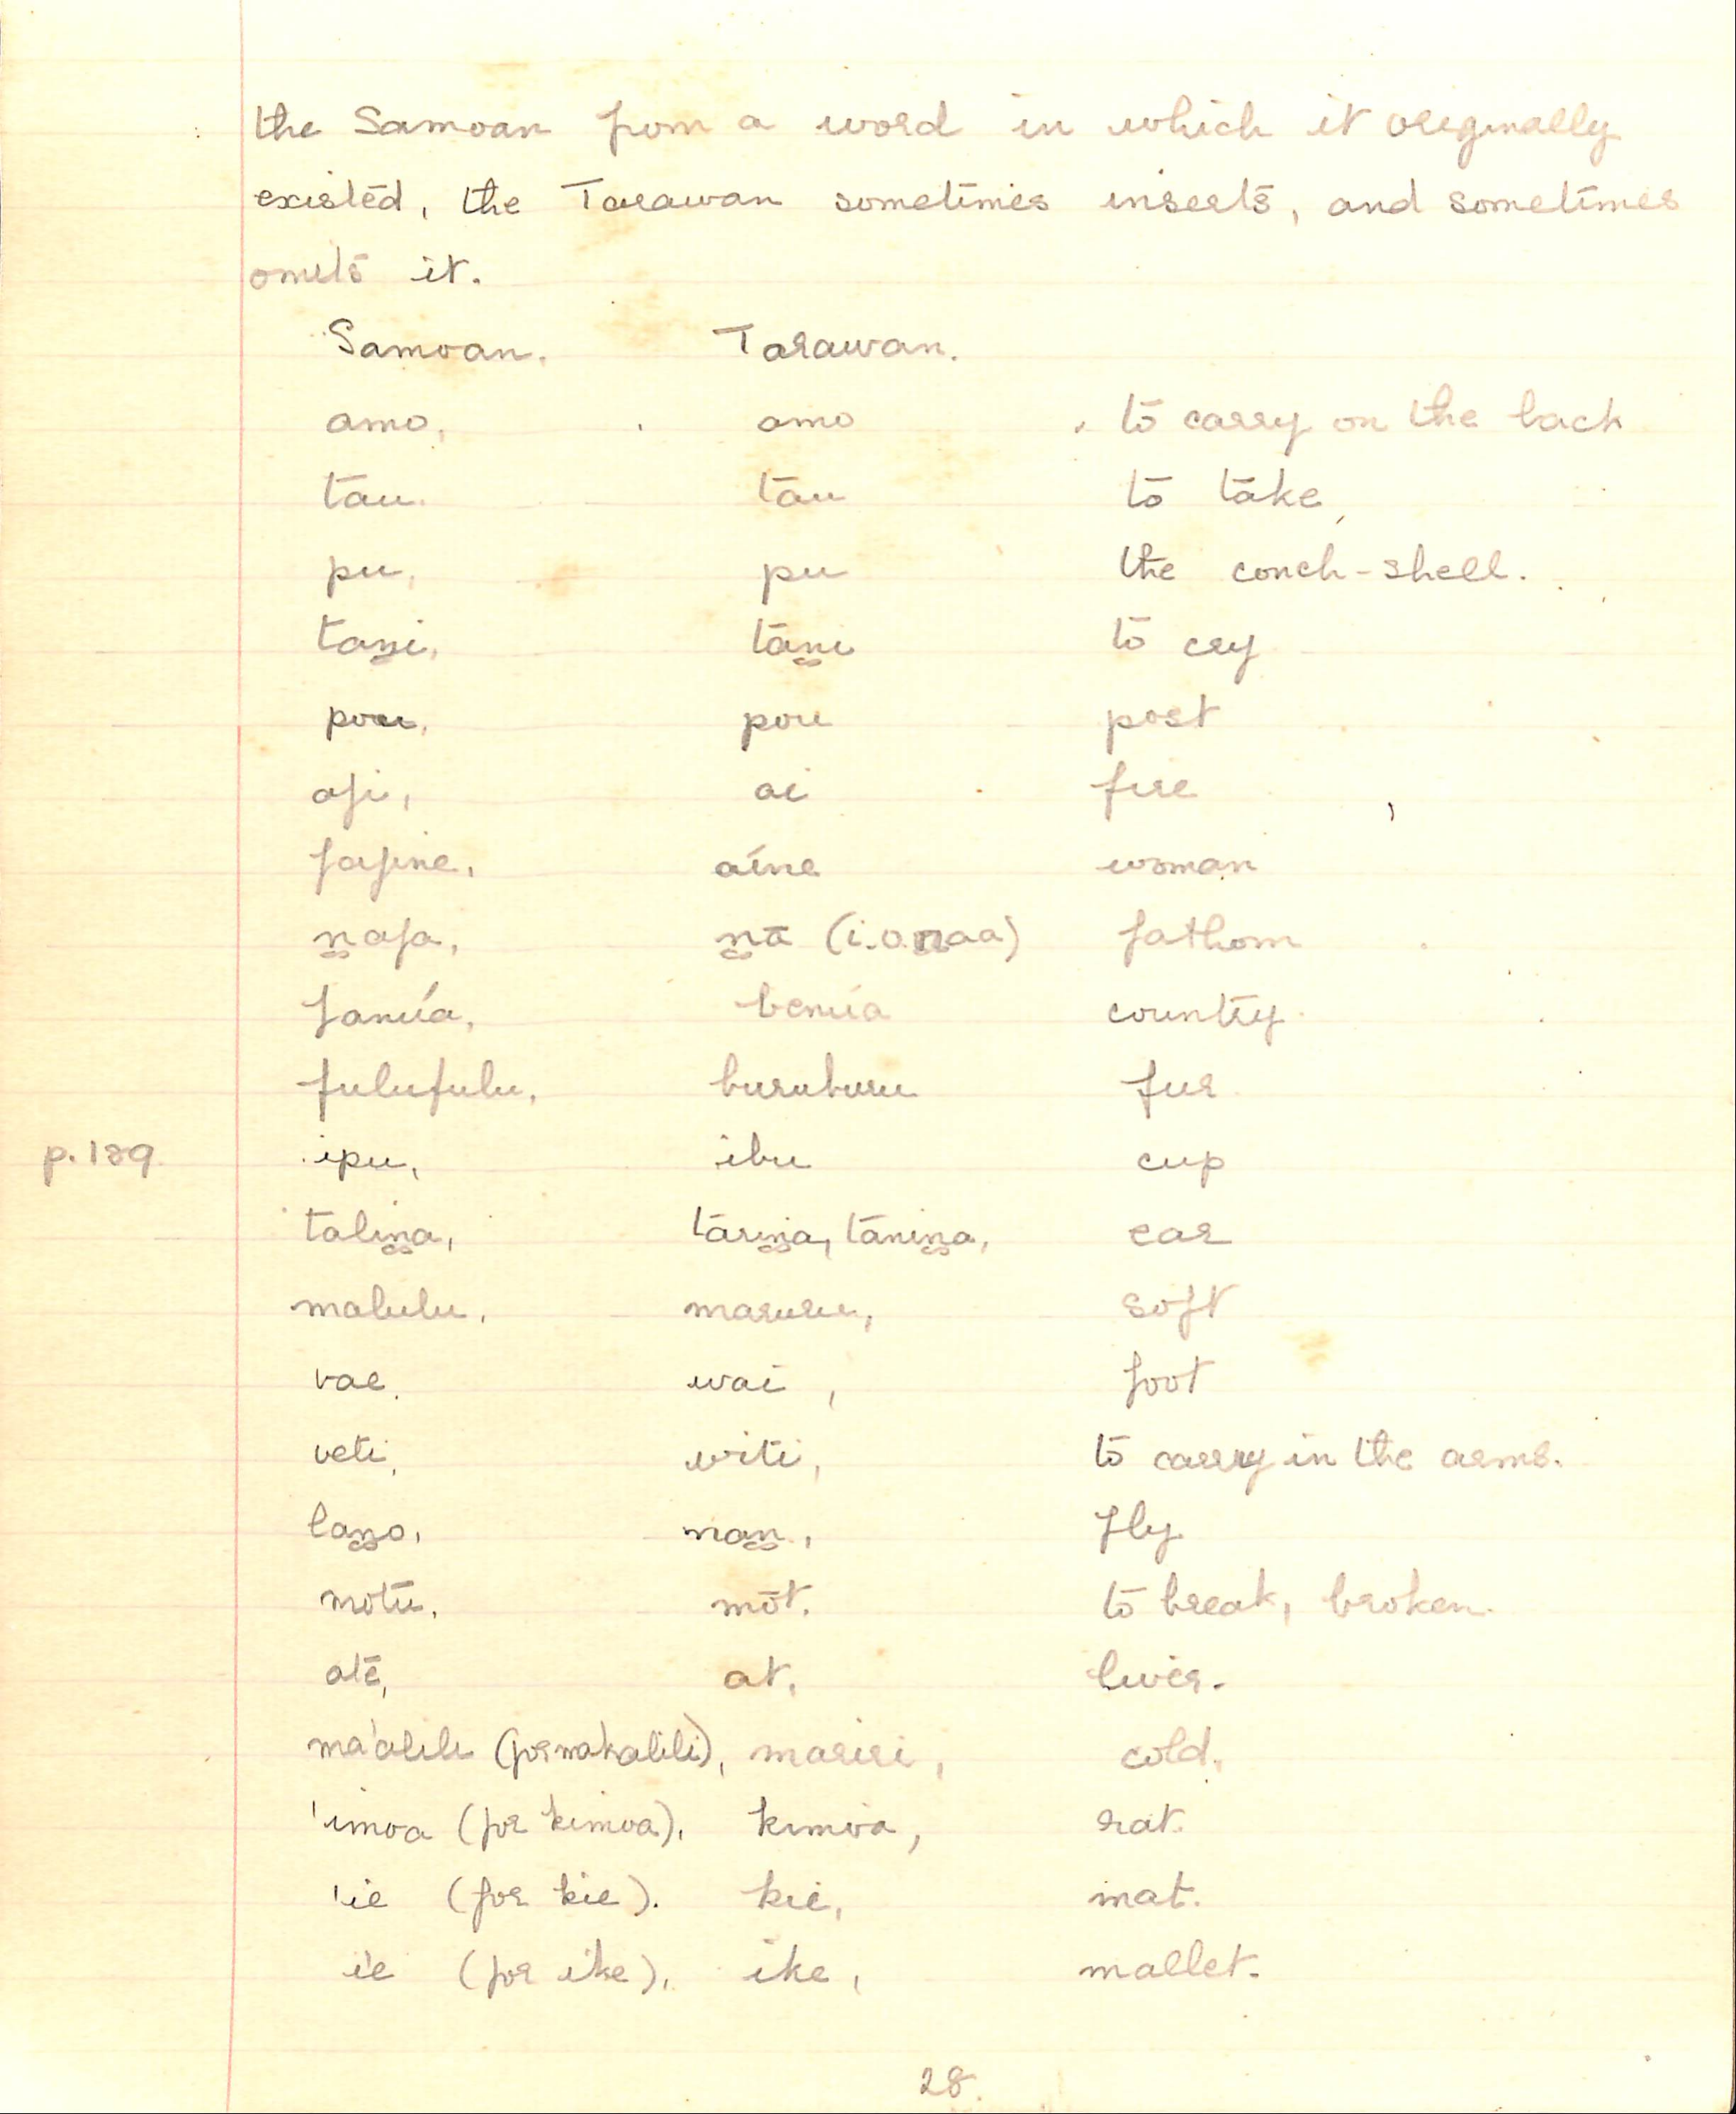 the Samoan from a word in which it originally
existed, the Tarawan sometimes inserts, and sometimes
omits it.
Samoan. Tarawan.
amo, amo to carry on the back
tau. tau to take
pu, pu the conch-shell.
taṉi, taṉi to cry
pou, pou post
afi, ai fire
fafine, aíne woman
ṉafa, ṉā (i.e. ṉaa) fathom
fanúa, benúa country
fulufulu, buruburu fur
p.189 ipu, ibu cup
taliṉa, tariṉa, taniṉa, ear
malulu, maruru, soft
vae, wai, foot
veti, witi, to carry in the arms.
laṉo, naṉ, fly
motu, mōt. to break, broken.
ate, at, liver.
ma'alili (for makalili), mariri, cold.
'imoa (for kimoa), kimoa, rat.
'ie (for kie). kie, mat.
i'e (for ike), ike, mallet.
28.